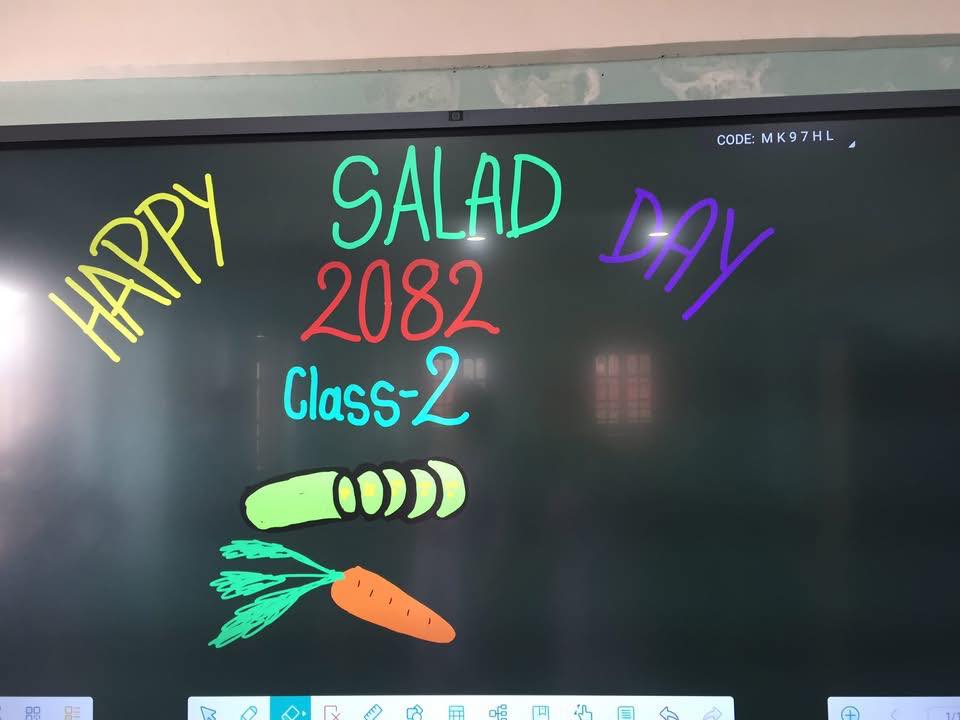 CODE: MK97HL
HAPPY SALAD DAY
2082
Class-2